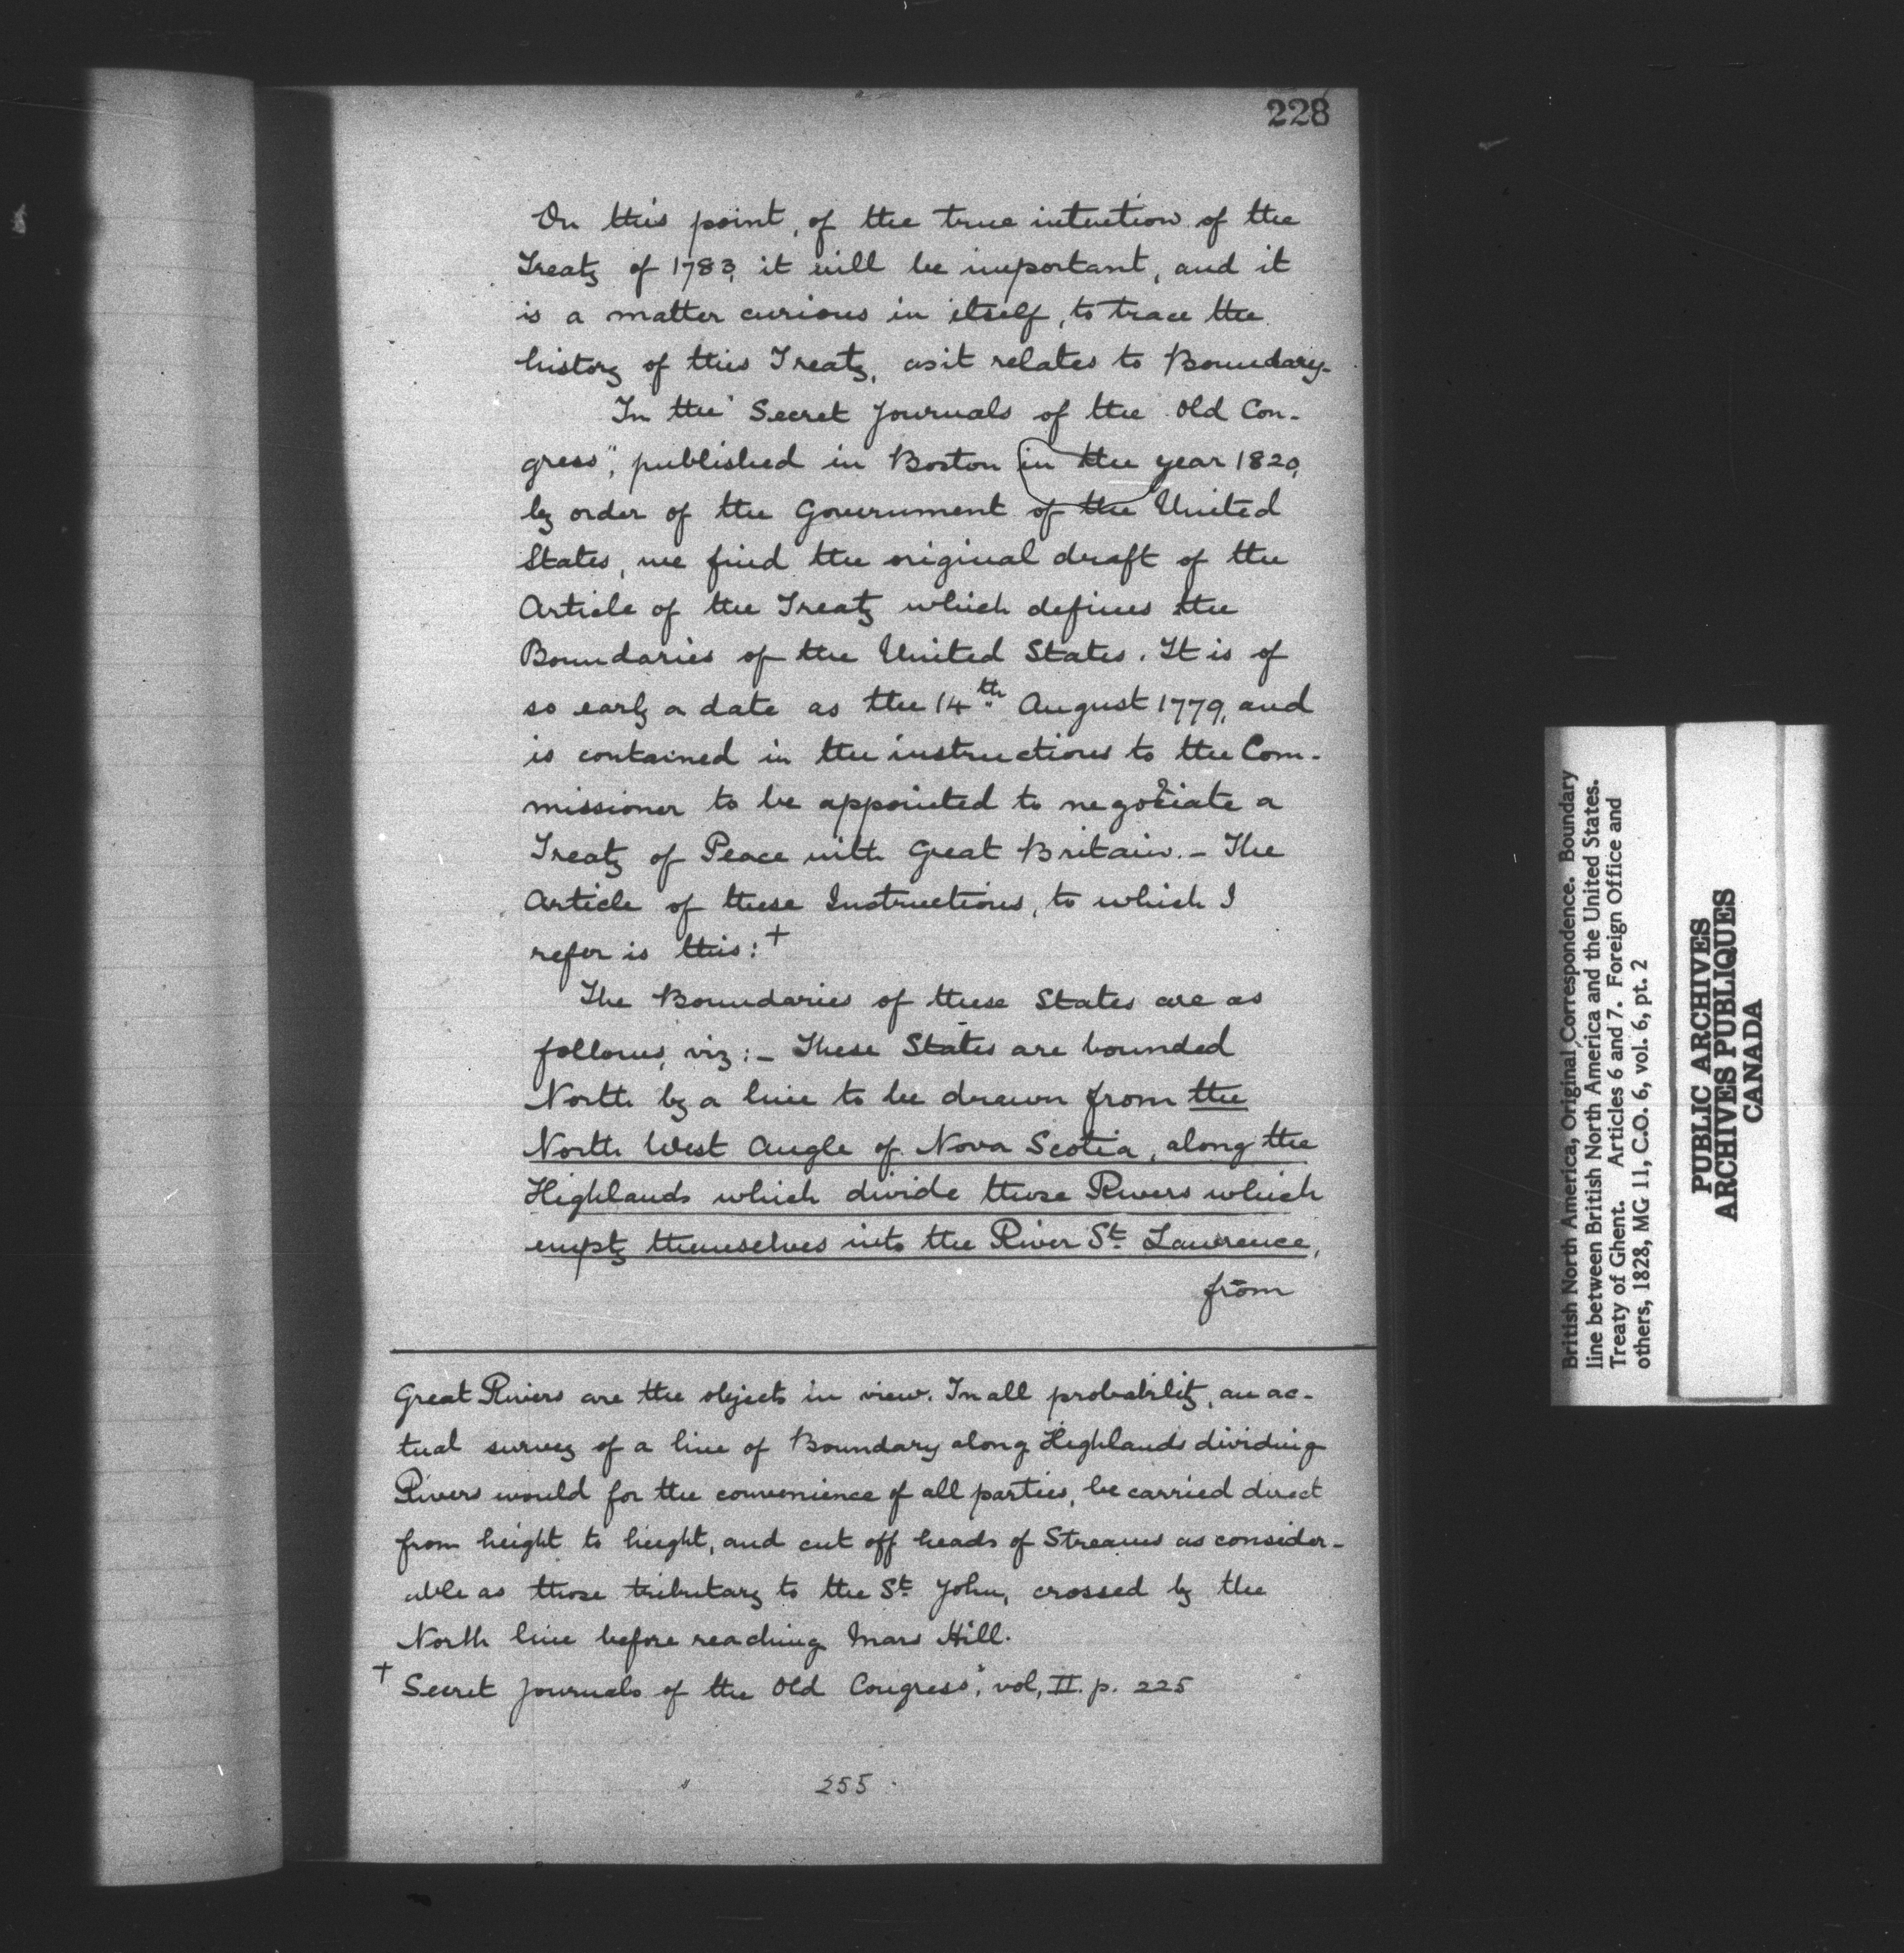 228
On this point, of the true intention of the
Treaty of 1783, it will be important, and it
is a matter curious in itself, to trace the
history of this Treaty, as it relates to Boundary.
In the "Secret Journals of the Old Con-
gress", published in Boston in the year 1820,
by order of the Government of the United
States, we find the original draft of the
Article of the Treaty which defines the
Boundaries of the United States. It is of
so early a date as the 14th August 1779, and
is contained in the instructions to the Com-
missioner to be appointed to negotiate a
Treaty of Peace with Great Britain. - The
Article of these Instructions, to which I
refer is this: +
The Boundaries of these States are as
follows, viz: - These States are bounded
North by a line to be drawn from the
North West Angle of Nova Scotia, along the
Highlands which divide those Rivers which
empty themselves into the River St. Lawrence,
from
Great Rivers are the objects in view. In all probability, an ac-
tual survey of a line of Boundary along Highlands dividing
Rivers would for the convenience of all parties, be carried direct
from height to height, and cut off heads of Streams as consider-
able as those tributary to the St. John, crossed by the
North line before reaching Mars Hill.
+ Secret Journals of the Old Congress", vol, II. p. 225
255
British North America, Original Correspondence. Boundary
line between British North America and the United States.
Treaty of Ghent. Articles 6 and 7. Foreign Office and
others, 1828, MG 11, C.O. 6, vol. 6, pt. 2
PUBLIC ARCHIVES
ARCHIVES PUBLIQUES
CANADA